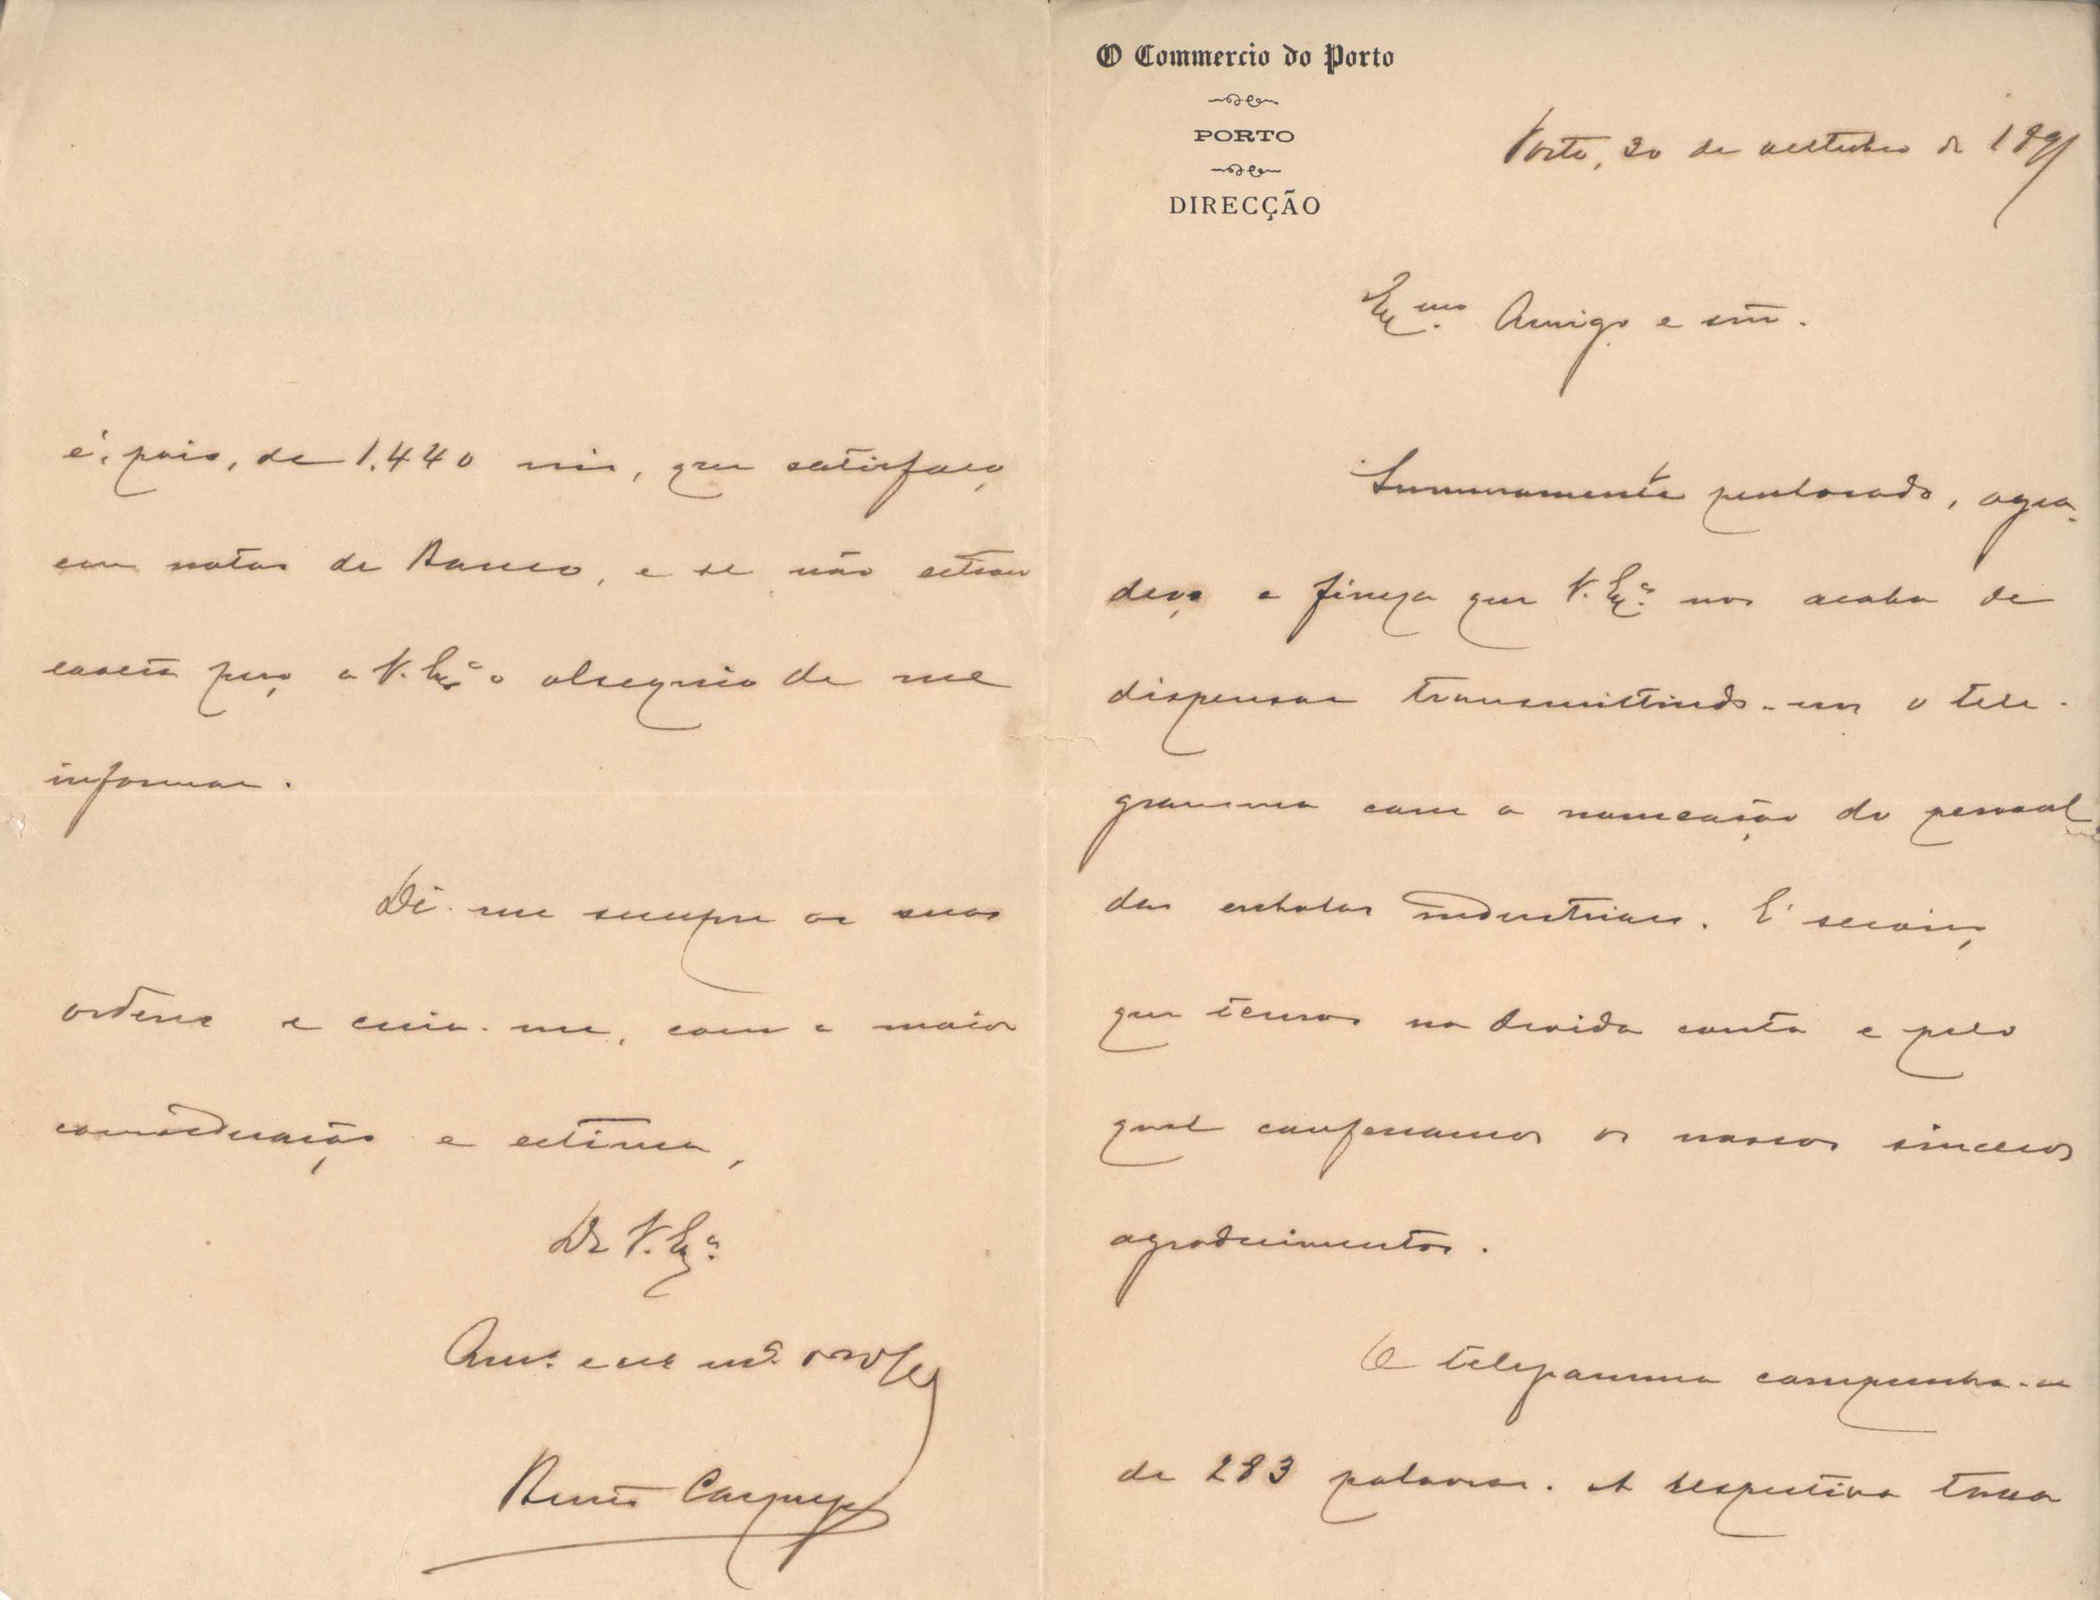 O Commercio do Porto
PORTO
DIRECÇÃO
Porto, 30 de outubro de 1891
Exmo. Amigo e snr.
Summamente penhorado, agra-
deço a fineza que V. Exa. nos acaba de
dispensar transmittindo-nos o tele-
gramma com a nomeação do pessoal
das escholas industriaes. É serviço
que temos na devida conta e pelo
qual confessamos os nossos sinceros
agradecimentos.
O telegramma compunha-se
de 283 palavras. A respectiva taxa
é, pois, de 1.440 reis, que satisfaço
com notas de Banco, e se não estiver
certa peço a V. Exa. o obsequio de me
informar.
Dê-me sempre as suas
ordens e creia-me, com a maior
consideração e estima,
De V. Exa.
Amo. e
Bento Carqueja